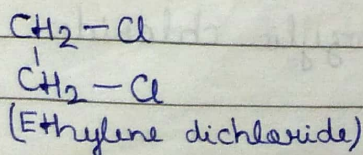 CH2-Cl
CH2-Cl
(Ethylene dichloride)